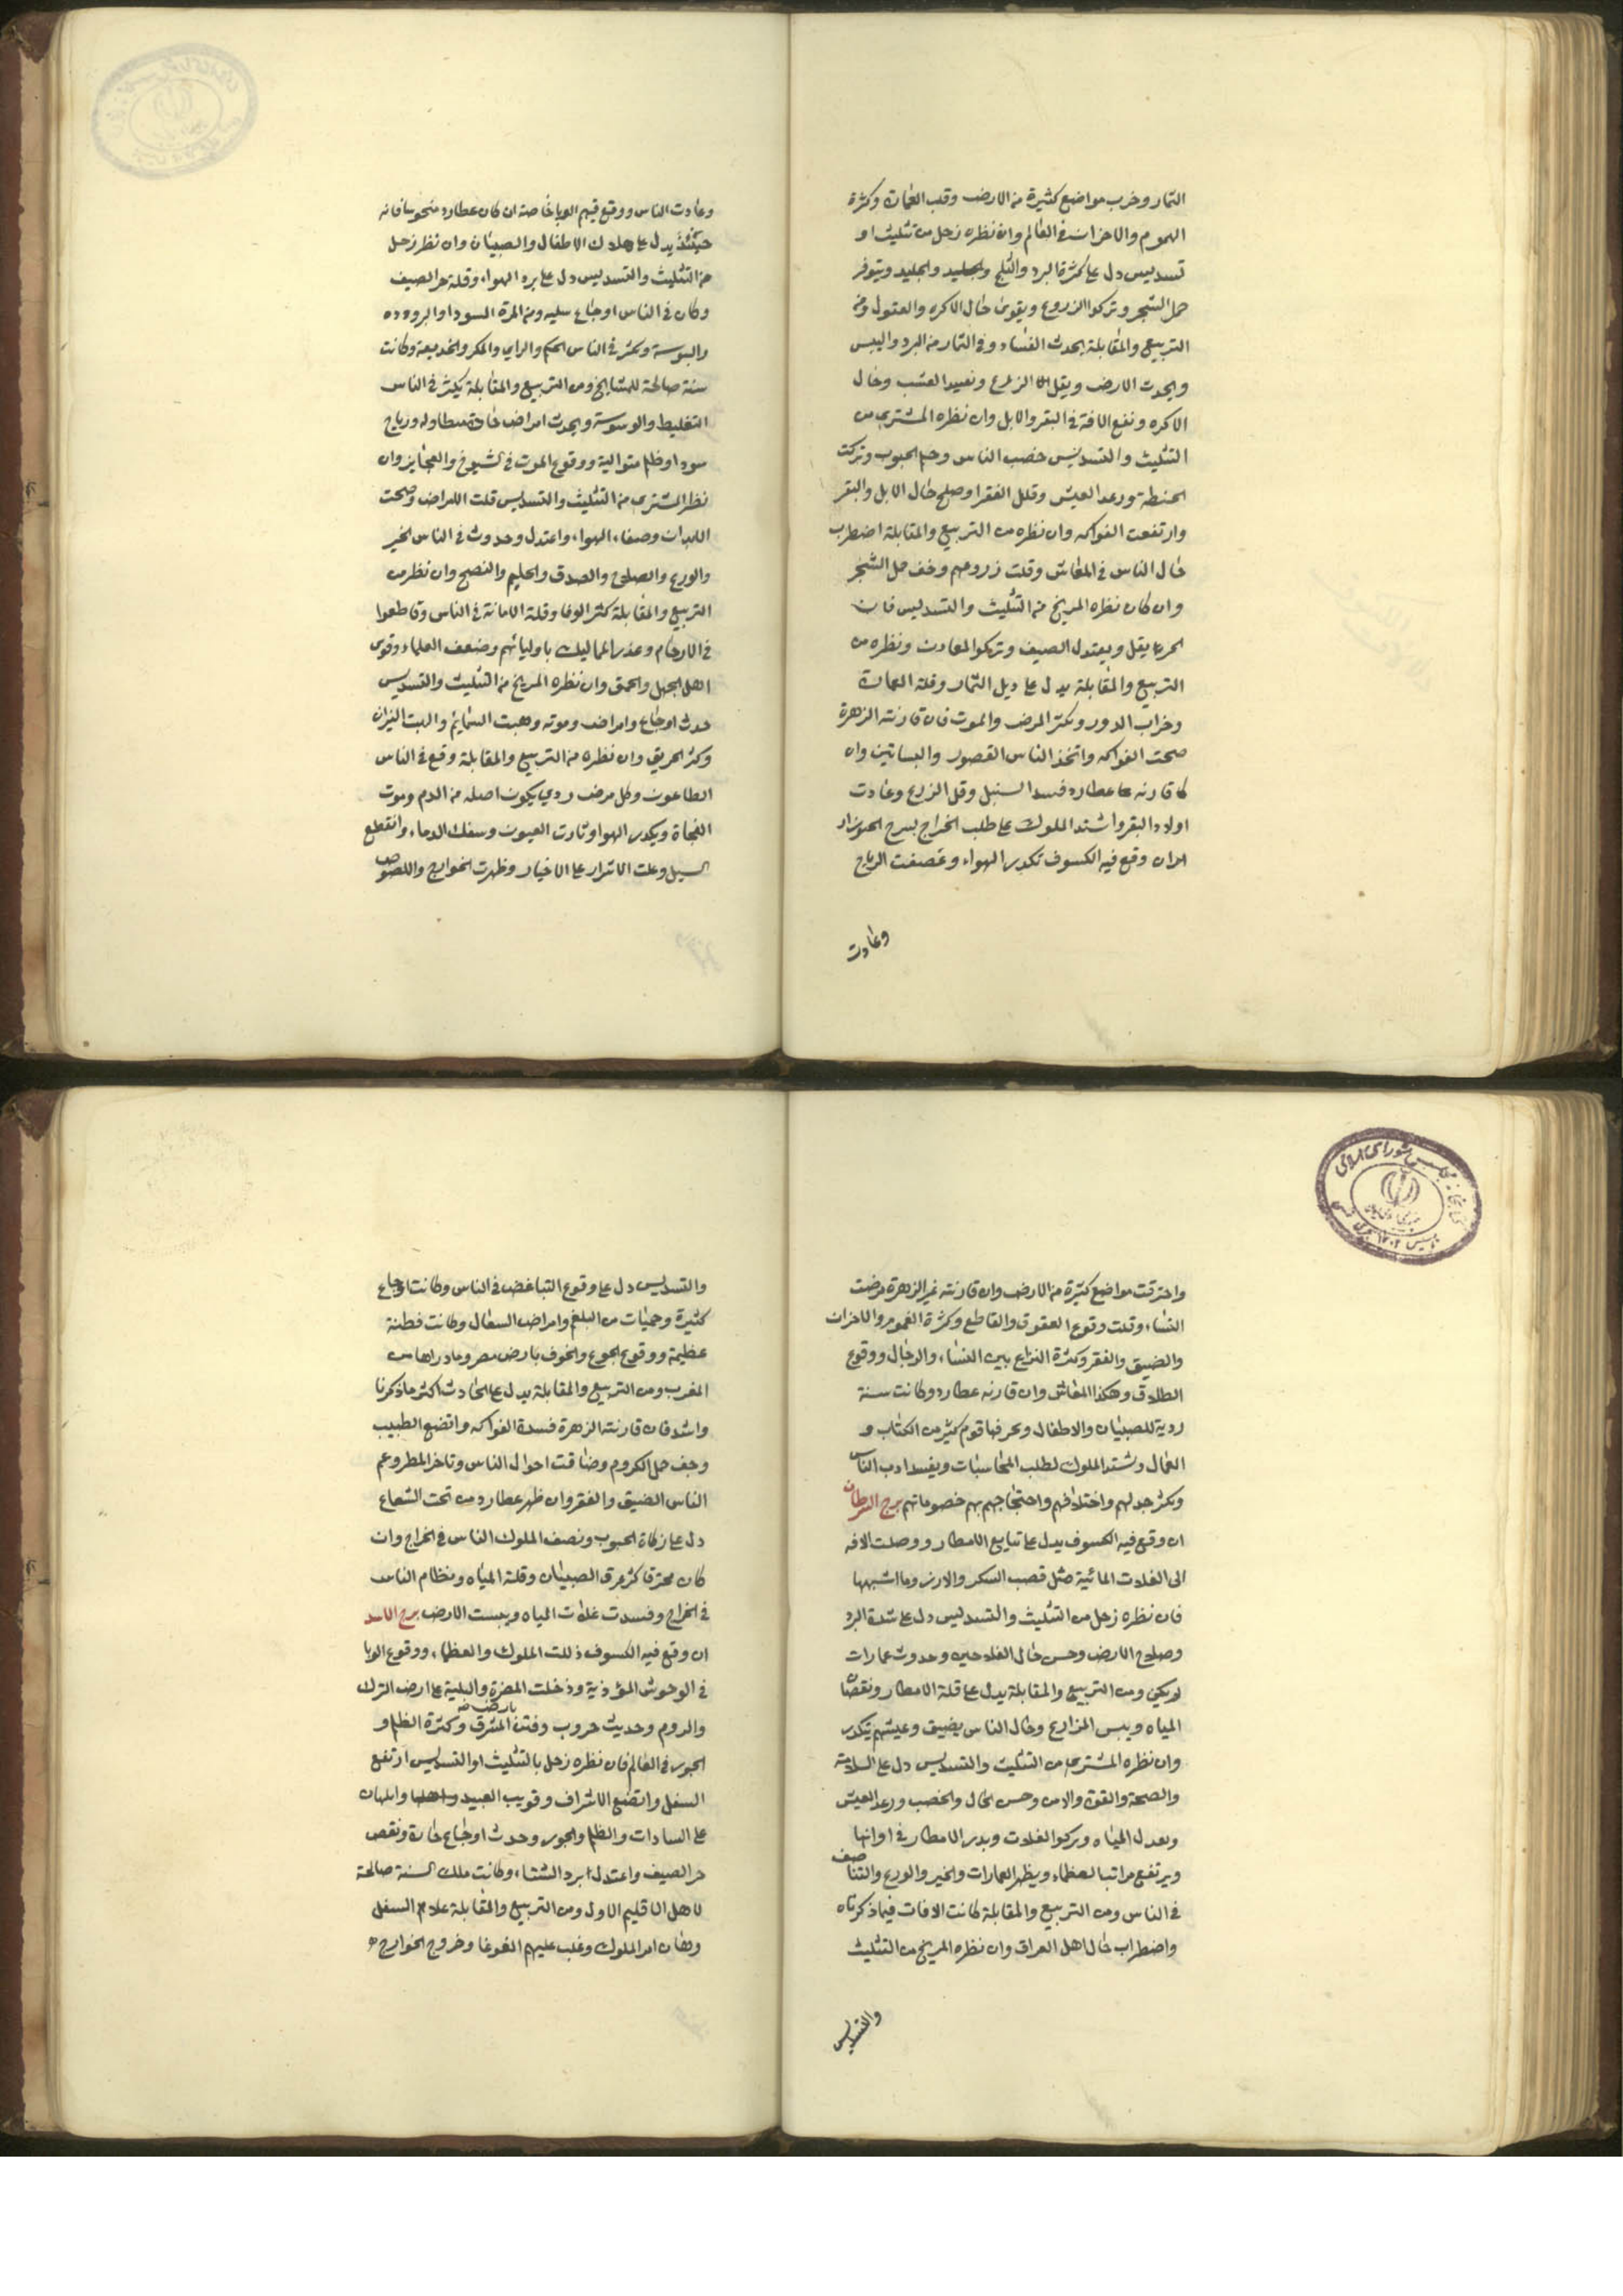 الثمار وخرب مواضع كثيرة من الارض وقلب العمارة وكثرة
الهموم والاحزان في العالم وان نظره زحل من تثليث او
تسديس دل على كثرة البرد والثلج والجليد والجليد ويتوفر
حمل الشجر وتزكوا الزروع ويقوى حال الاكره والحقول ومن
التربيع والمقابلة يحدث الفساد وفي الثمار من البرد واليبس
ويحدث الارض ويقل الزرع العشب وحال
الاكره وتقع الافة في البقر والابل وان نظره المشتري من
التثليث والتسديس خصب الناس وحم الحبوب وتركت
الحنطة ورغد العيش وقلل الفقرا وصلح حال الابل والبقر
وارتفعت الفواكه وان نظره من التربيع والمقابلة اضطرب
حال الناس في المعاش وقلت زروعهم وخف حمل الشجر
وان كان نظره المريخ من التثليث والتسديس فان
الحر ما يقل ويعتدل الصيف وتزكوا المعادن ونظره من
التربيع والمقابلة يدل على الثمار وقلة العمارة
وخراب الدور ويكثر المرض والموت فان قارنته الزهرة
صحت الفواكه واتخذ الناس القصور والبساتين وان
قارنه عطارد فسد السنبل وقل الزرع وعادت
اولاد البقر واشتد الملوك على طلب الخراج برج الجوزاء
ان وقع فيه الكسوف تكدر الهواء وعصفت الرياح
وعادت
وعادت الناس ووقع فيهم الوبا خاصة ان كان عطارد منحوسا فانه
حينئذ يدل على هلاك الاطفال والصبيان وان نظر زحل
من التثليث والتسديس دل على برد الهواء وقلة حر الصيف
وكان في الناس اوجاع سليه ومن المرة السودا والبروده
واليبوسة وكثر في الناس الحكم والراي والمكر والخديعة وكانت
سنة صالحة للمشايخ ومن التربيع والمقابلة يكثر في الناس
التخليط والوسوسة ويحدث امراض حادة متطاوله ورياح
سودا وظلم متوالية ووقوع الموت في الشيوخ والعجايز وان
نظر المشتري من التثليث والتسديس قلت الامراض وصحت
الابدان وصفاء الهواء واعتدل وحدوث في الناس الخير
والورع والصلاح والصدق والحليم والنصح وان نظر من
التربيع والمقابلة كثر الوغا وقلة الامانة في الناس وتقاطعوا
في الارحام وغدر المماليك باوليائهم وضعف العلماء وقوى
اهل الجهل والحمق وان نظره المريخ من التثليث والتسديس
حدث اوجاع وامراض وموته وهبت السمايم والهبت النيران
وكثر الحريق وان نظره من التربيع والمقابلة وقع في الناس
الطاعون وكل مرض ردي يكون اصله من الدم وموت
الفجاة ويكدر الهوا وثارت العيون وسفك الدماء وانقطع
السبل وعلت الاشرار على الاخيار وظهرت الخوارج واللصوص
واحترقت مواضع كثيرة من الارض وان قارنته غير الزهرة مرضت
النساء وقلت وقوع العقوق والقاطع وكثرة الغموم والاحزان
والضيق والفقر وكثرة النزاع بين النساء والرجال ووقوع
الطلاق وهكذا المعاش وان قارنه عطارد وكانت سنة
ردية للصبيان والاطفال ويحرفها قوم كثير من الكتاب و
العمال ويشتد الملوك لطلب المحاسبات ويفسد ادب الناس
ويكثر جدلهم واختلافهم واحتجاجهم بهم خصوماتهم برج السرطان
ان وقع فيه الكسوف يدل على تتابع الامطار ووصلت الافه
الى الغلات المائية مثل قصب السكر والارز وما اشبهها
فان نظره زحل من التثليث والتسديس دل على شدة البرد
وصلاح الارض وحسن حال الفلاحين وحدوث عمارات
لم يكن ومن التربيع والمقابلة يدل على قلة الامطار ونقصان
المياه ويبس المزارع وحال الناس يضيق وعيشهم يتكدر
وان نظره المشتري من التثليث والتسديس دل على السلامة
والصحة والقوة والامن وحسن الحال والخصب ورغد العيش
ويعدل المياه ويزكوا الغلات ويدر الامطار في اوانها
ويرتفع مراتب العظماء ويظهر العمارات والخير والورع والتناصف
في الناس ومن التربيع والمقابلة كانت الافات فيما ذكرناه
واضطراب حال اهل العراق وان نظره المريخ من التثليث
والتسديس
والتسديس دل على وقوع التباغض في الناس وكانت اوجاع
كثيرة وحميات من البلغم وامراض السفال وكانت فطنة
عظيمة ووقوع الجوع والخوف بارض مصر
المغرب ومن التربيع والمقابلة يدل على الحادث اكثر ما ذكرنا
واشد فان قارنته الزهرة فسدة الفواكه واتضع الطبيب
وجف حمل الكروم وضاقت احوال الناس وتاخر المطر وعم
الناس الضيق والفقر وان ظهر عطارد من تحت الشعاع
دل على زكاة الحبوب ونصف الملوك الناس في الخراج وان
كان محترقا كثر غرق الصبيان وقلة المياه ونظام الناس
في الخراج وفسدت غلات المياه ويبست الارض برج الاسد
ان وقع فيه الكسوف ذلت الملوك والعظماء ووقوع الوبا
في الوحوش المؤذية ودخلت المضرة والبلية على ارض الترك
والروم وحديث حروب وفتن بارض المشرق وكثرة الظلم و
الجور في العالم فان نظره زحل بالتثليث او التسديس ارتفع
السفل واتضع الاشراف وقويت العبيد
على السادات والظلم والجور وحدث اوجاع حارة ونقص
حر الصيف واعتدل برد الشتاء وكانت ملك السنة صالحة
لاهل الاقليم الاول ومن التربيع والمقابلة علاهم السفل
وهان امر الملوك وغلب عليهم الغوغا وخروج الخوارج